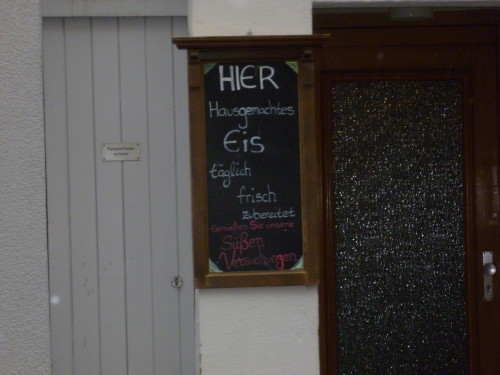 HIER
Hausgemachtes
Eis
täglich
frisch
zubereitet
Genießen Sie unsere
Süßen
Versuchungen